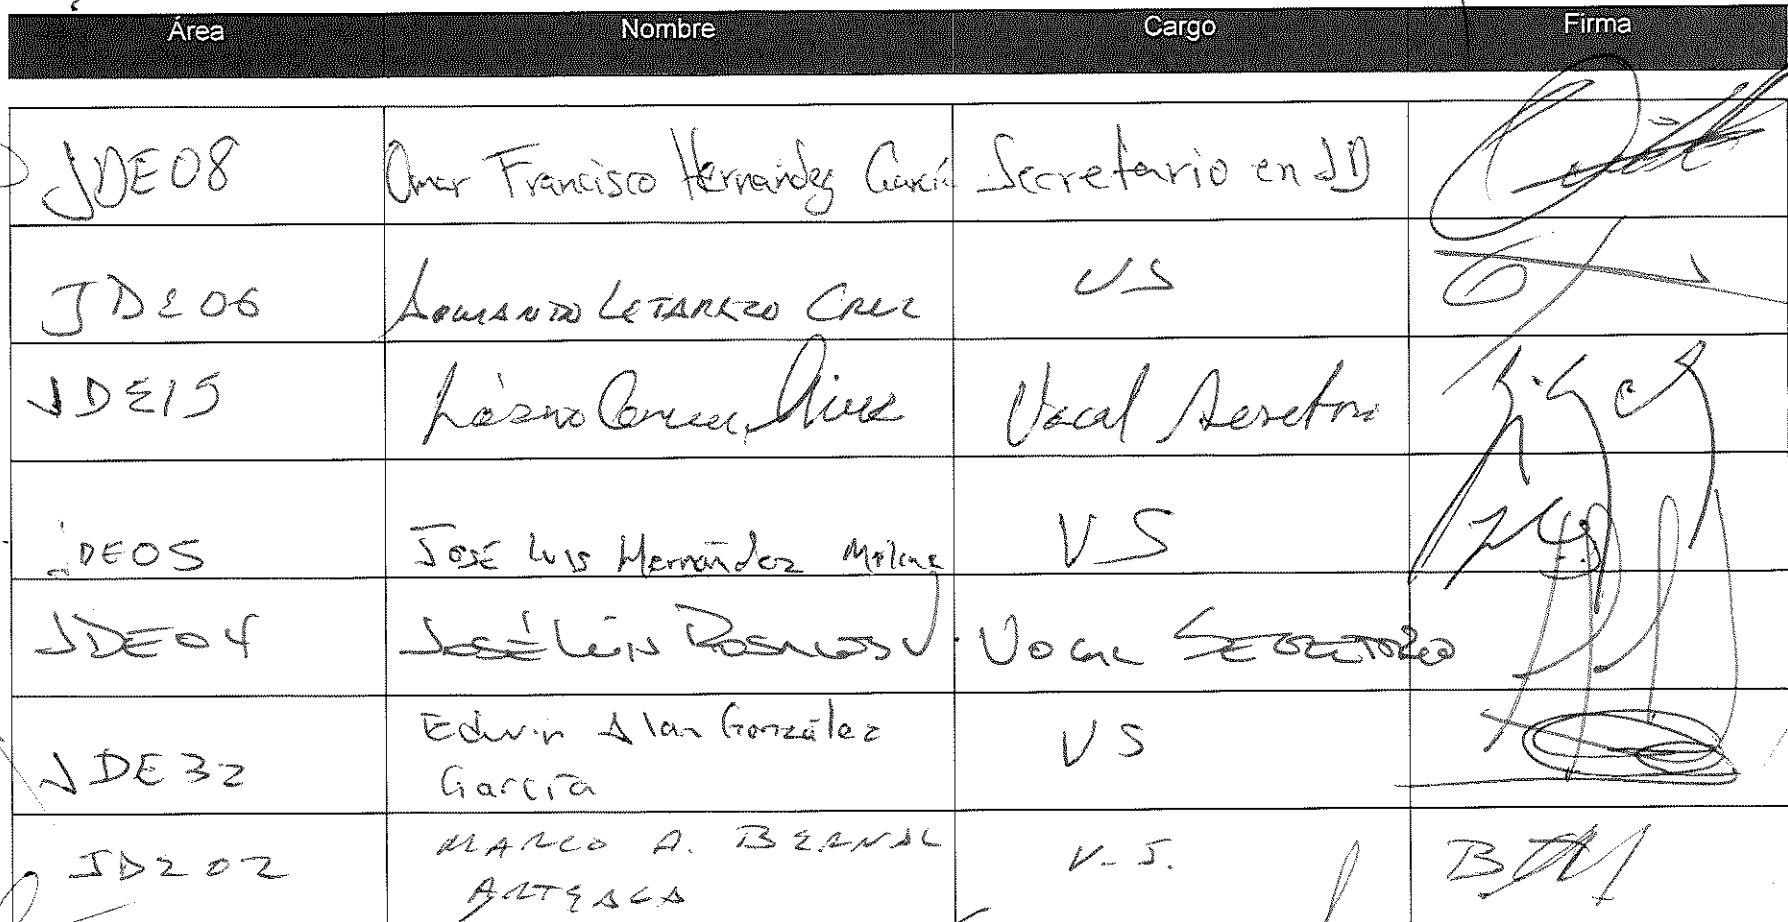 Área Nombre Cargo Firma
JDE08 Omar Francisco Hernández García Secretario en JD
JDE06 Cruz VS
JDE15 Vocal
JDE05 José Luis Hernández Molina VS
JDE04 José León Rosales V. Vocal Secretario
JDE32 Edwin Alan González VS
García
JDE02 MARCO A. BERNAL V.S.
ARTEAGA